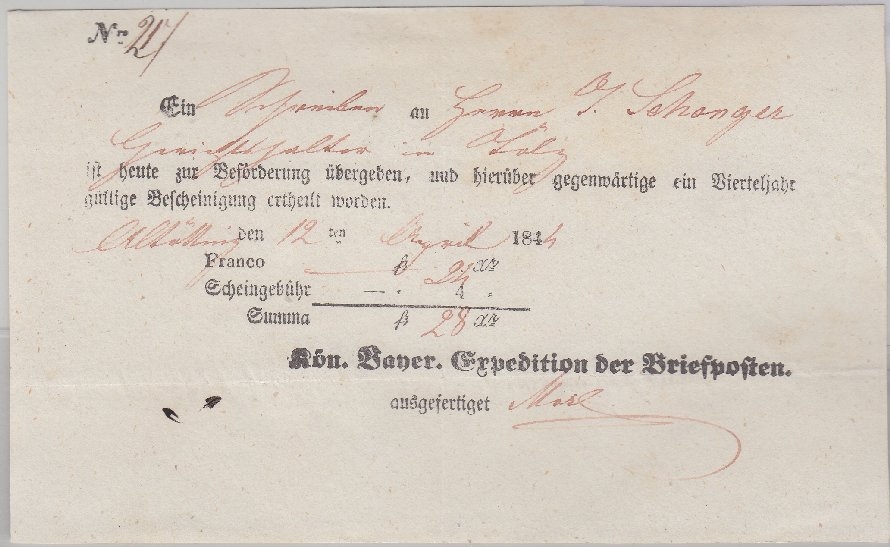 Nro 21
Ein Schreiben an Herrn J. Schonger
Gerichtshalter in Tölz
ist heute zur Beförderung übergeben, und hierüber gegenwärtige ein Vierteljahr
gültige Bescheinigung ertheilt worden.
Altötting den 12 ten April 1844
Franco — fl 24 xr
Scheingebühr — . 4 .
Summa fl 28 xr
Kön. Bayer. Expedition der Briefposten.
ausgefertiget